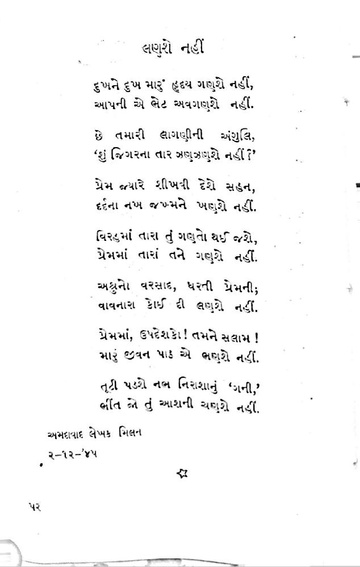 લણશે નહીં
દુખને દુખ મારું હૃદય ગણશે નહીં,
આપની એ ભેટ અવગણશે નહીં.
છે તમારી લાગણીની અંગુલિ,
'શું જિગરના તાર ઝણઝણશે નહીં ?'
પ્રેમ જ્યારે શીખવી દેશે સહન,
દર્દના નખ જખ્મને ખણશે નહીં.
વિરહમાં તારા તું ગણતો થઈ જશે,
પ્રેમમાં તારાં તને ગણશે નહીં.
અશ્રુનો વરસાદ, ધરતી પ્રેમની;
વાવનારા કોઈ દી લણશે નહીં.
પ્રેમમાં, ઉપદેશકો! તમને સલામ !
મારું જીવન પાઠ એ ભણશે નહીં.
તૂટી પડશે નભ નિરાશાનું 'ગની,'
ભીંત જો તું આશની ચણશે નહીં.
અમદાવાદ લેખક મિલન
૨-૧૨-'૪૫
૫૨